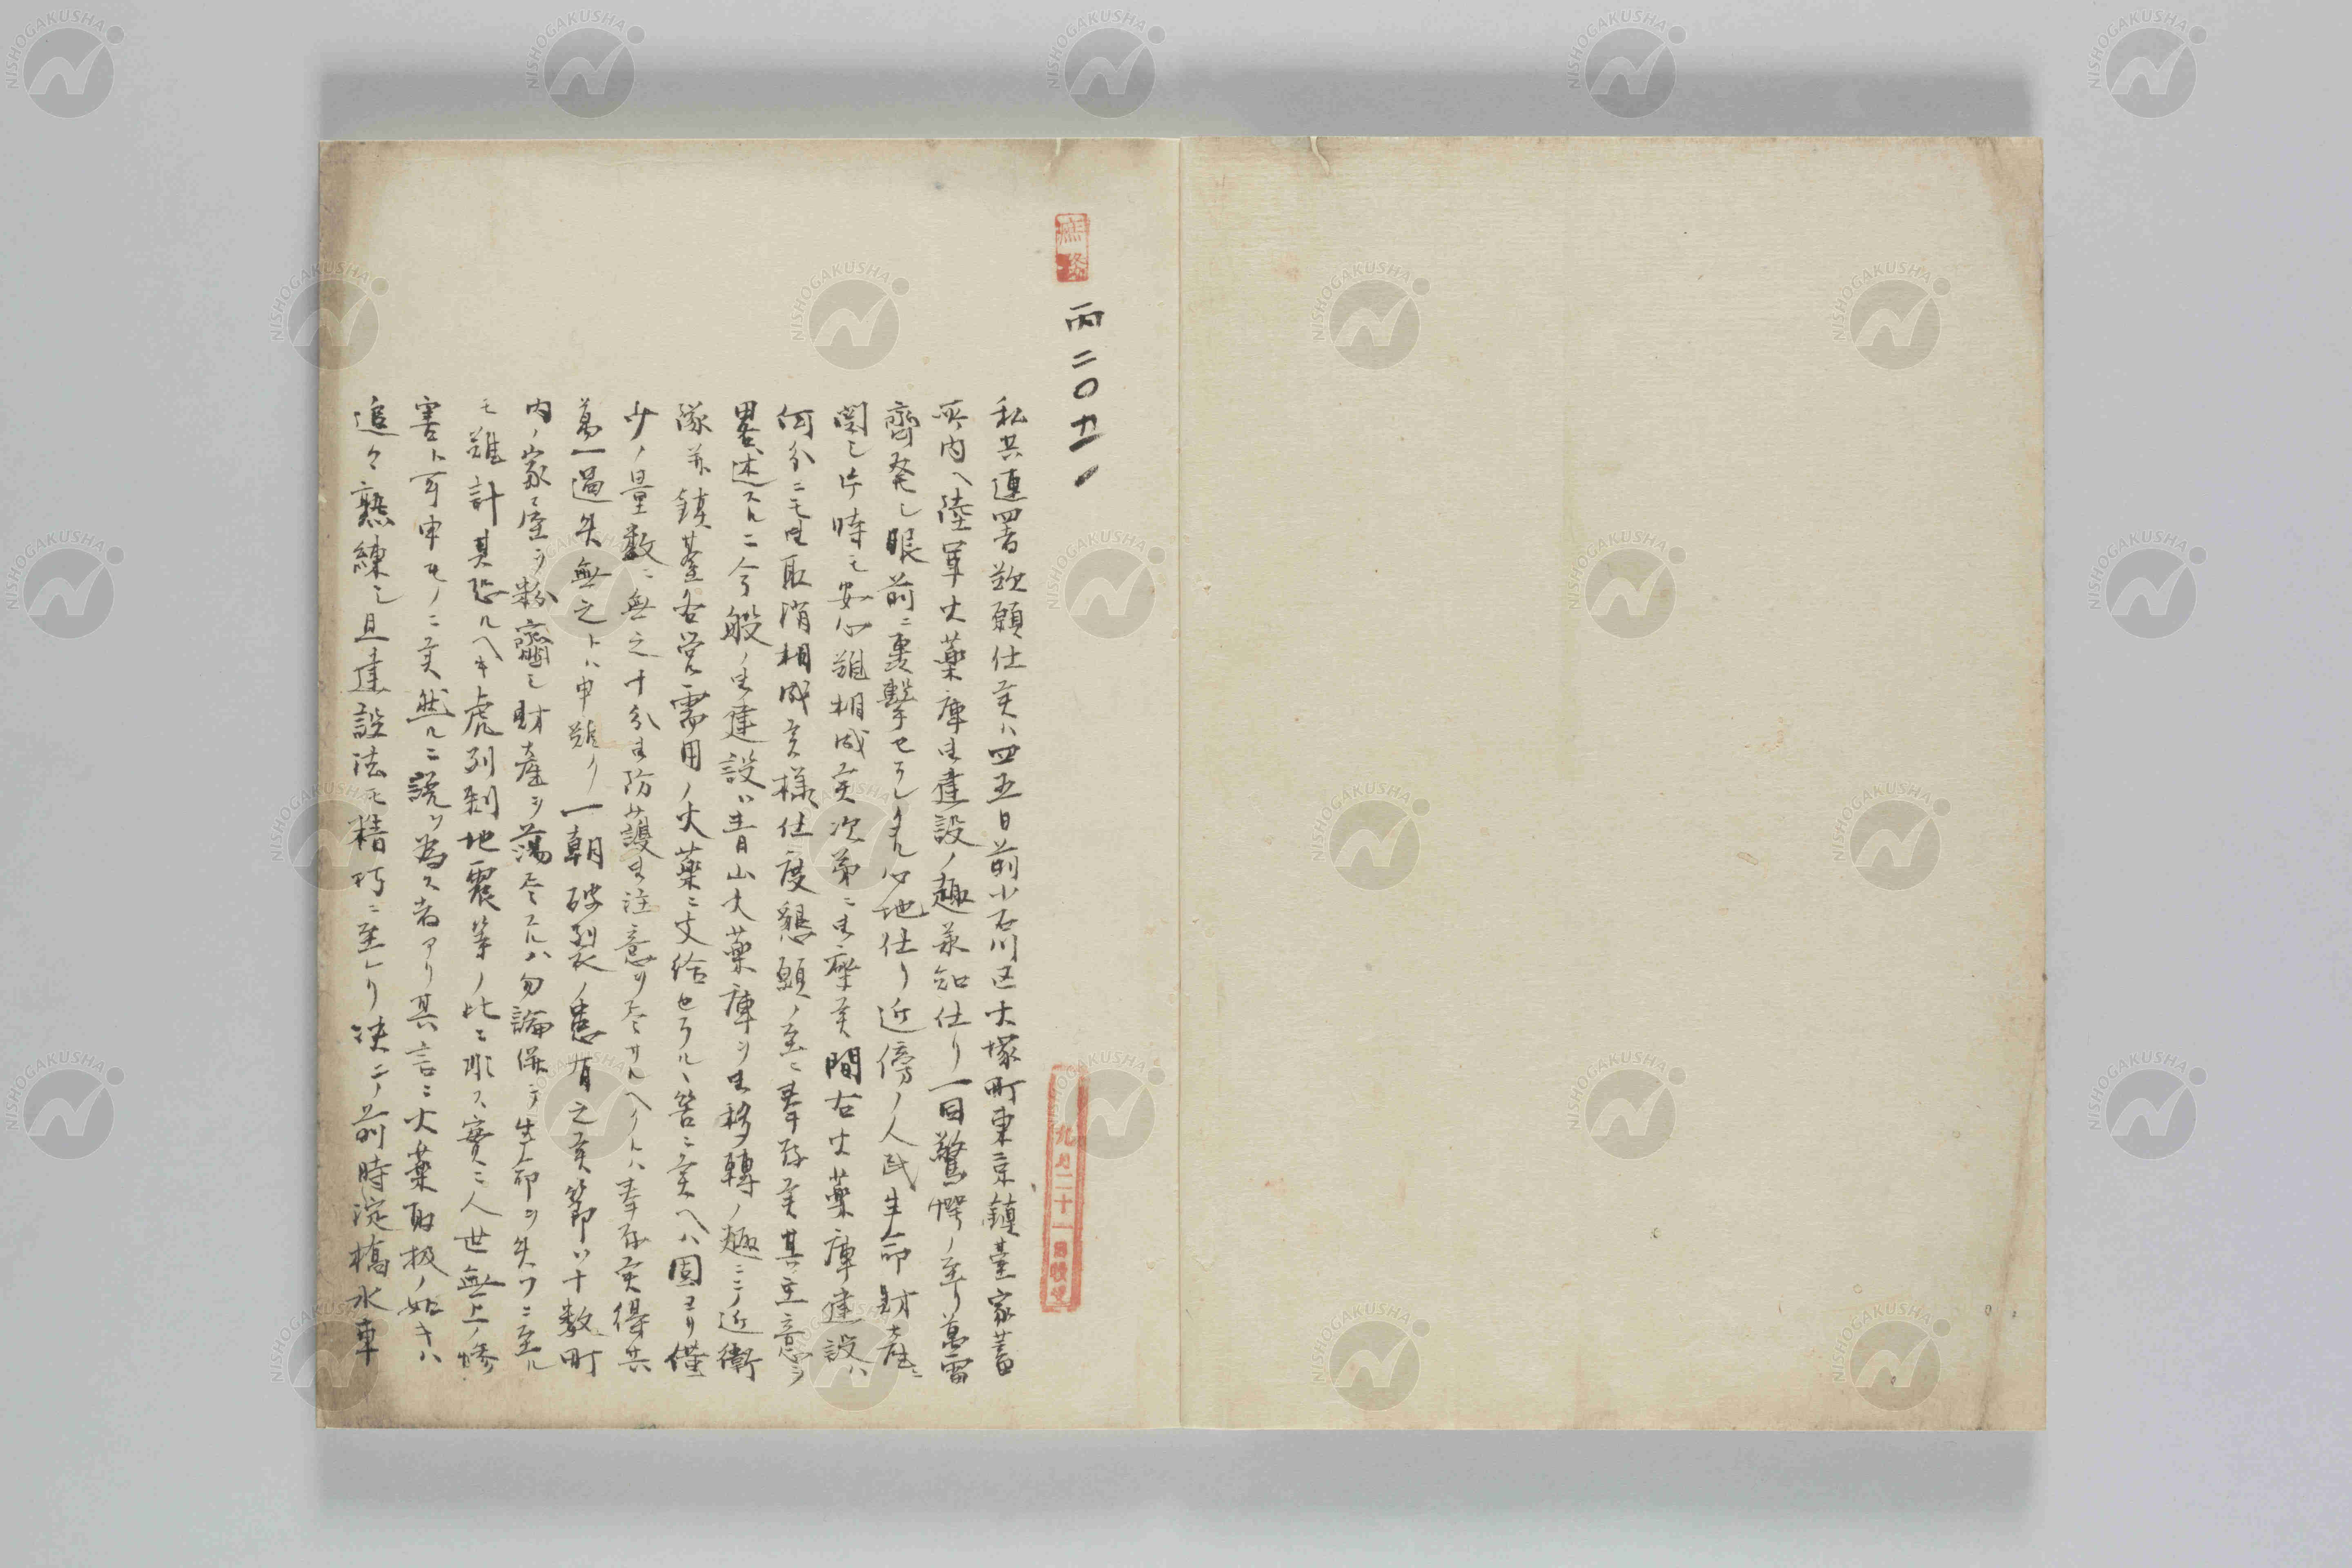 丙二〇五一
私共連署歎願仕候ハ四五日前小石川区大塚町東京鎮臺家蓄
所内ヘ陸軍火薬庫御建設ノ趣承知仕リ一同驚愕ノ至リ萬雷
齊発シ眼前ニ裏撃セラレタル心地仕リ近傍ノ人民生命財産ニ
関シ片時モ安心難相成候次第ニ御座候間右火薬庫建設ハ
何分ニモ御取消相成候様仕度懇願ノ至ニ奉存候其主意ヲ
畧述スルニ今般ノ御建設ハ青山火薬庫ヲ御移轉ノ趣ニテ近衛
隊并鎮臺各営需用ノ火薬ニ支給セラルヽ筈ニ候ヘハ固ヨリ僅
少ノ量数ニ無之十分御防護御注意ヲ尽サルヘクトハ奉存候得共
萬一過失無之トハ申難ク一朝破裂ノ患有之候節ハ十数町
内ノ家屋ヲ粉齏シ財産ヲ蕩尽スルハ勿論併テ生命ヲ失フニ至ル
モ難計其恐ルヘキ虎列剌地震等ノ比ニ非ス実ニ人世無上ノ惨
害ト可申モノニ候然ルニ説ヲ為ス者アリ其言ニ火薬取扱ノ如キハ
追々熟練シ且建設法モ精巧ニ至レリ决テ前時淀橋水車
九月二十一日
NISHOGAKUSHA